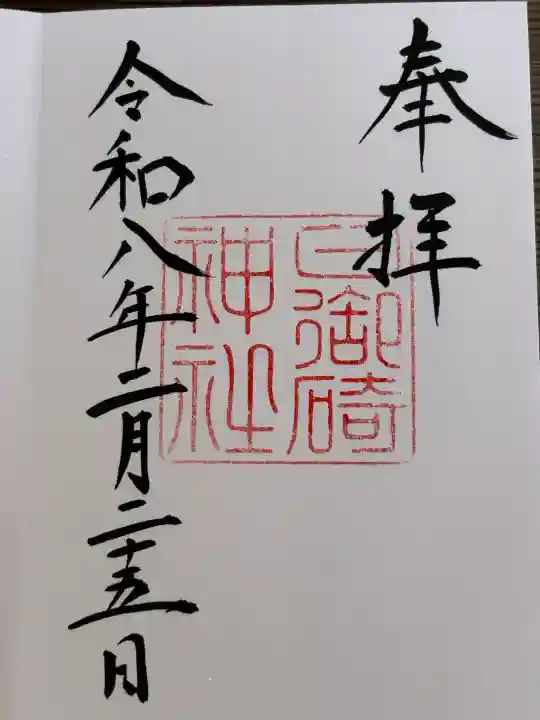 奉拝
日御碕
神社
令和八年二月二十五日